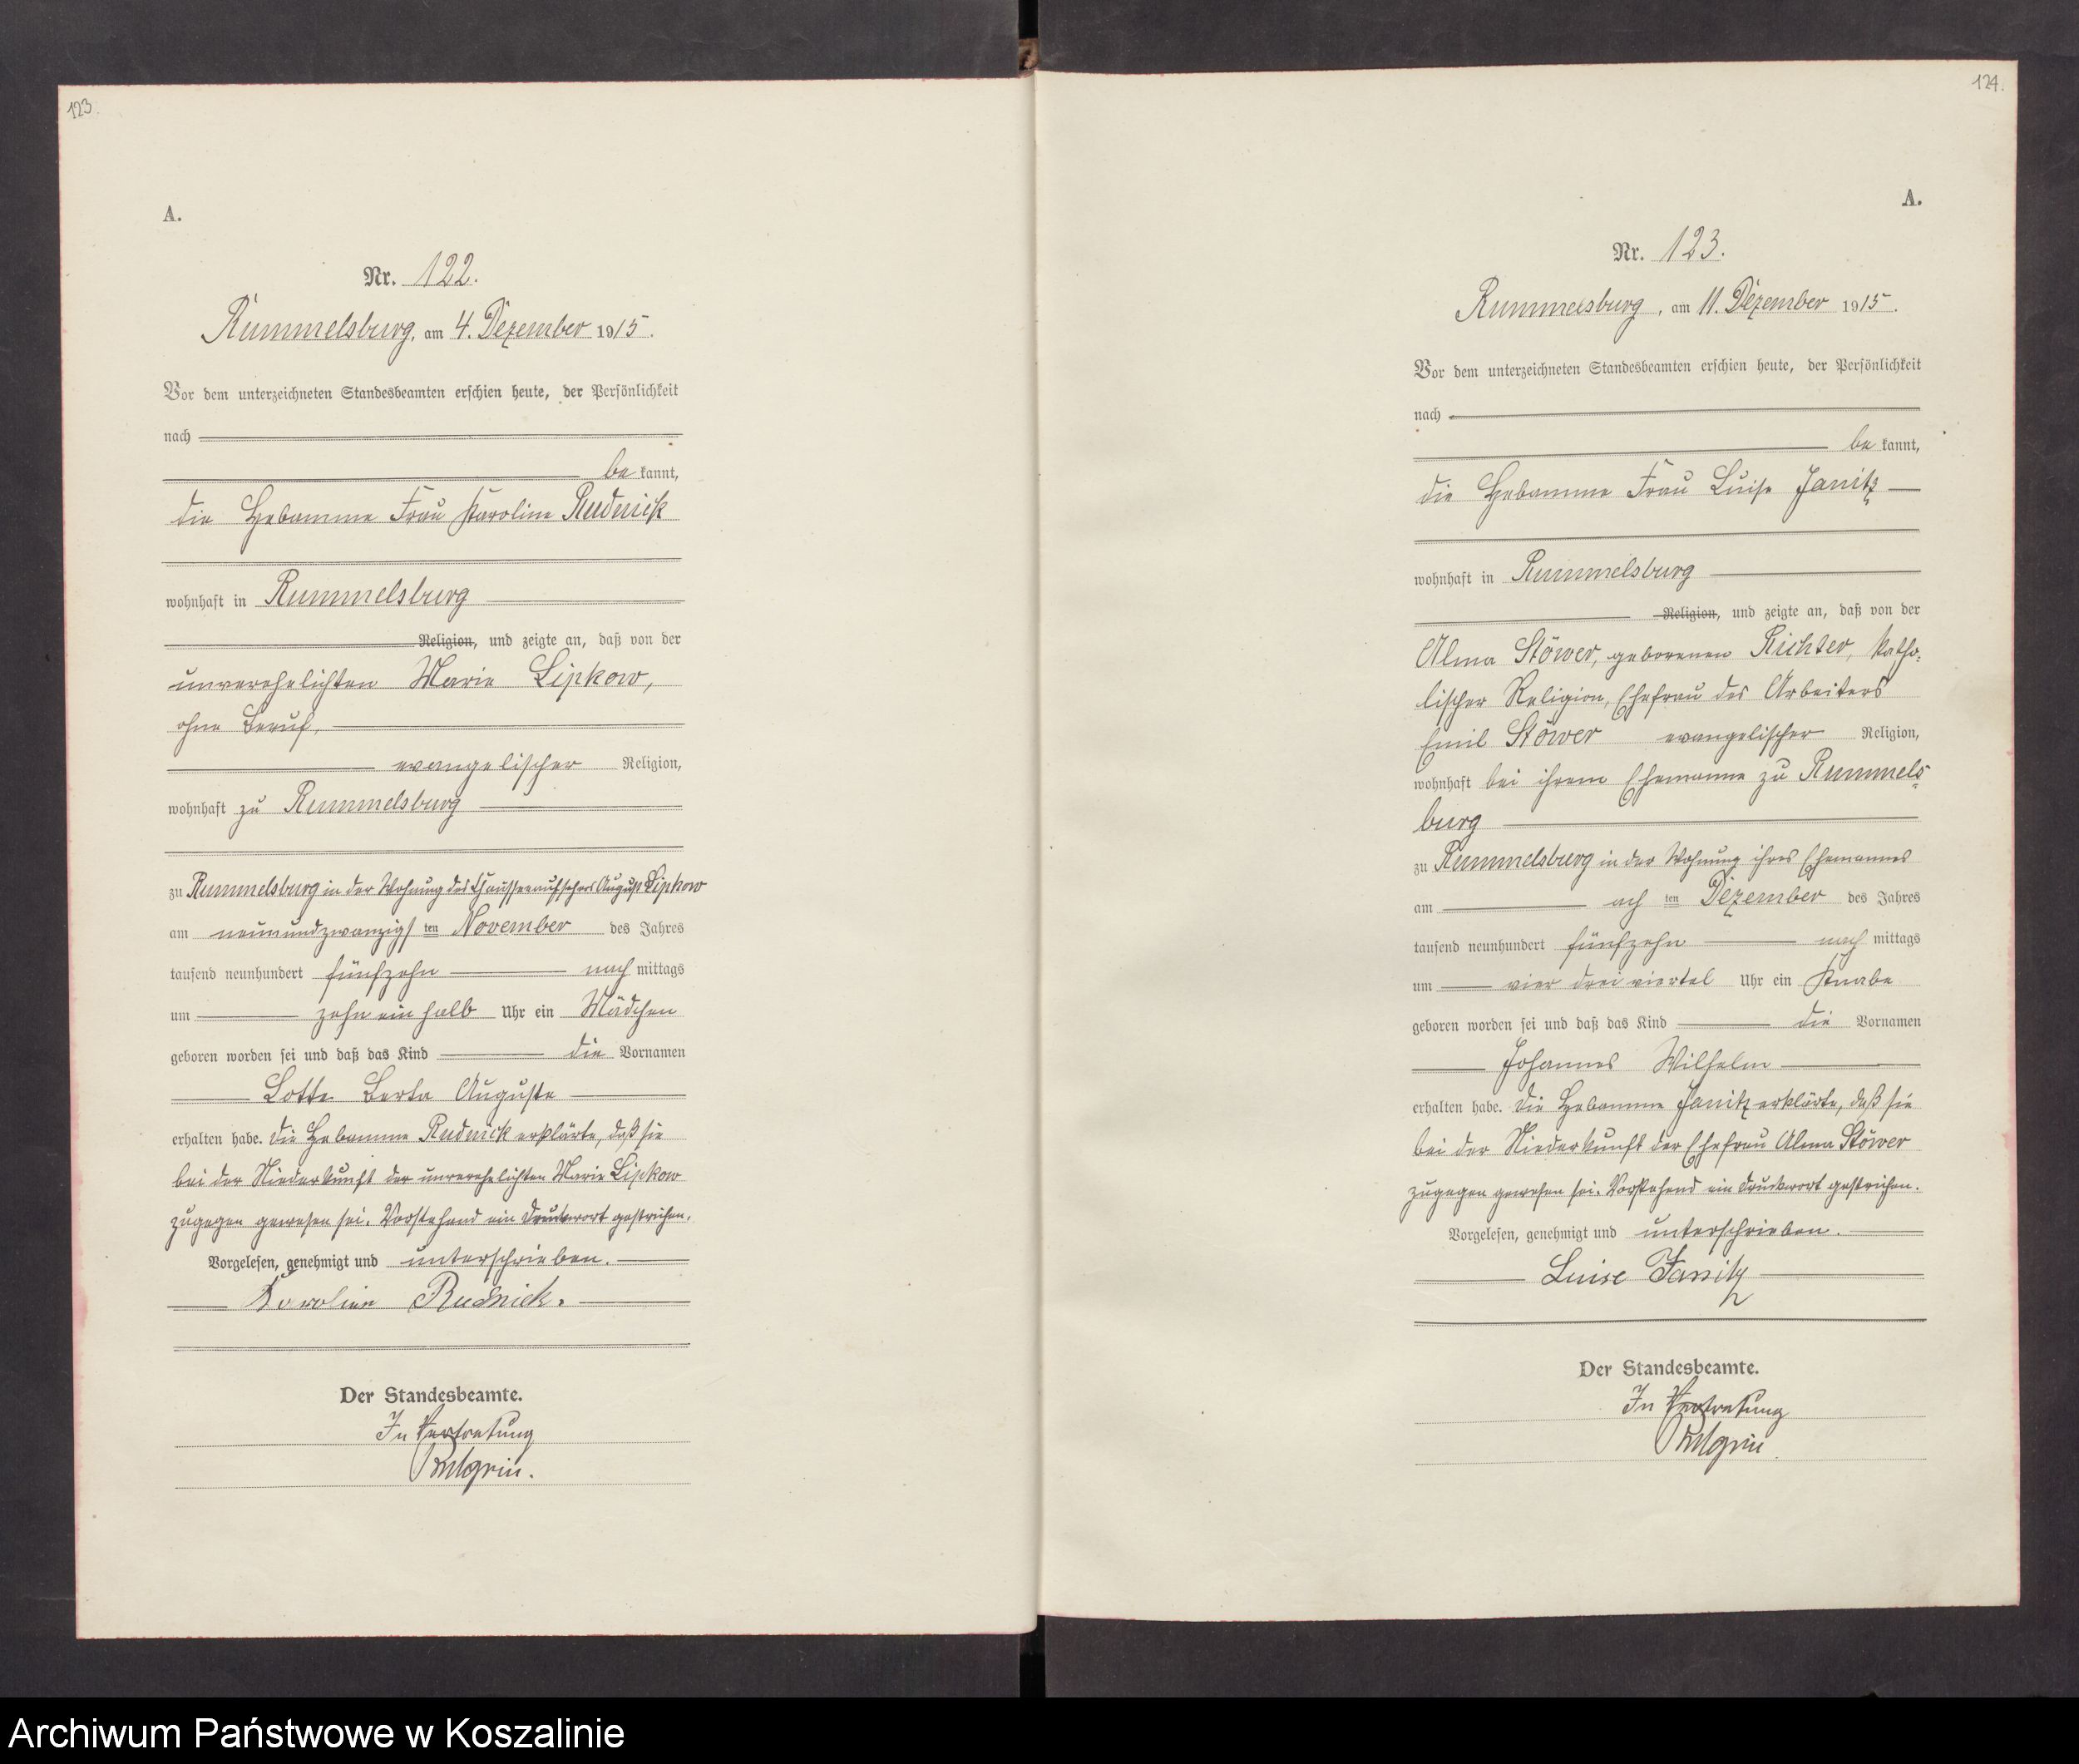 123.
A.
Nr. 122.
Rummelsburg, am 4. Dezember 1915.
Vor dem unterzeichneten Standesbeamten erschien heute, der Persönlichkeit
nach
be kannt,
die Hebamme Frau Karoline Rudnick
wohnhaft in Rummelsburg
Religion, und zeigte an, daß von der
unverehelichten Marie Lipkow,
ohne Beruf,
evangelischer Religion,
wohnhaft zu Rummelsburg
zu Rummelsburg in der Wohnung des Chausseeaufsehers August Lipkow
am neunundzwanzigsten November des Jahres
tausend neunhundert fünfzehn nach mittags
um zehn ein halb Uhr ein Mädchen
geboren worden sei und daß das Kind die Vornamen
Lotte Berta Auguste
erhalten habe. Die Hebamme Rudnick erklärte, daß sie
bei der Niederkunft der unverehelichten Marie Lipkow
zugegen gewesen sei. Vorstehend ein Druckwort gestrichen.
Vorgelesen, genehmigt und unterschrieben.
Karoline Rudnick.
Der Standesbeamte.
In Vertretung
124.
A.
Nr. 123.
Rummelsburg, am 11. Dezember 1915.
Vor dem unterzeichneten Standesbeamten erschien heute, der Persönlichkeit
nach
be kannt,
die Hebamme Frau Luise Janitz
wohnhaft in Rummelsburg
Religion, und zeigte an, daß von der
Alma Stöwer, geborenen Richter, katho-
lischer Religion, Ehefrau des Arbeiters
Emil Stöwer evangelischer Religion,
wohnhaft bei ihrem Ehemanne zu Rummels-
burg
zu Rummelsburg in der Wohnung ihres Ehemannes
am ach ten Dezember des Jahres
tausend neunhundert fünfzehn nach mittags
um vier drei viertel Uhr ein Knabe
geboren worden sei und daß das Kind die Vornamen
Johannes Wilhelm
erhalten habe. Die Hebamme Janitz erklärte, daß sie
bei der Niederkunft der Ehefrau Alma Stöwer
zugegen gewesen sei. Vorstehend ein Druckwort gestrichen.
Vorgelesen, genehmigt und unterschrieben.
Luise Janitz
Der Standesbeamte.
In Vertretung
Archiwum Państwowe w Koszalinie